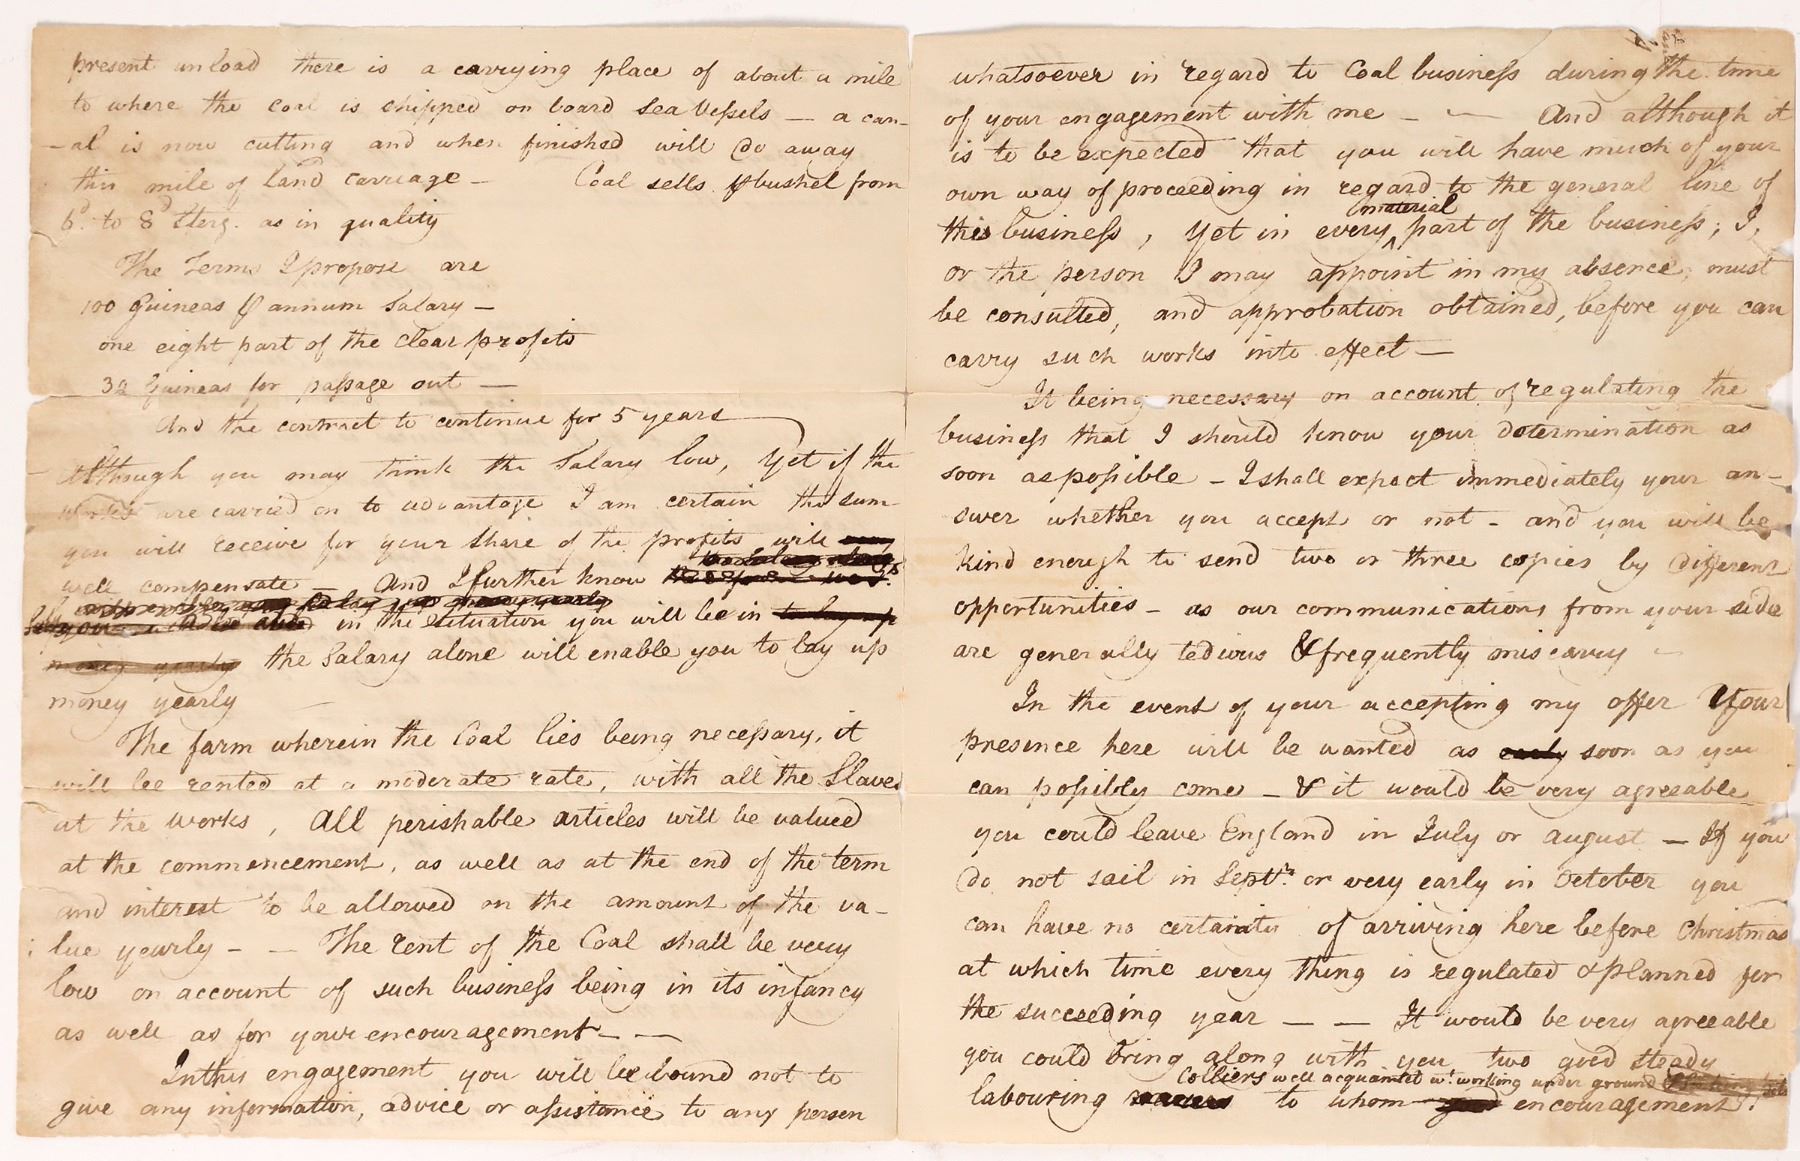 present unload there is a carrying place of about a mile
to where the coal is shipped on board Sea Vessels — a can-
-al is now cutting and when finished will do away
this mile of land carriage — Coal sells ⅌ bushel from
6d. to 8d Sterg. as in quality
The Terms I propose are
100 Guineas ⅌ annum Salary —
one eight part of the clear profits
32 Guineas for passage out —
And the contract to continue for 5 years
Although you may think the Salary low, Yet if the
works are carried on to advantage I am certain the sum
you will receive for your share of the profits will
well compensate — And I further know
in the situation you will be in to lay up
money yearly the Salary alone will enable you to lay up
money yearly
The farm wherein the Coal lies being necessary, it
will be rented at a moderate rate, with all the Slaves
at the works, All perishable articles will be valued
at the commencement, as well as at the end of the term
and interest to be allowed on the amount of the va-
lue yearly — — The rent of the Coal shall be very
low on account of such business being in its infancy
as well as for your encouragement — —
In this engagement you will be bound not to
give any information, advice or assistance to any person
whatsoever in regard to Coal business during the time
of your engagement with me — — And although it
is to be expected that you will have much of your
own way of proceeding in regard to the general line of
material
this business, Yet in every ^ part of the business; I,
or the person I may appoint in my absence, must
be consulted, and approbation obtained, before you can
carry such works into effect —
It being necessary on account of regulating the
business that I should know your determination as
soon as possible — I shall expect immediately your an-
swer whether you accept or not — and you will be
kind enough to send two or three copies by different
opportunities — as our communications from your side
are generally tedious & frequently miscarry —
In the event of your accepting my offer Your
presence here will be wanted as early soon as you
can possibly come — & it would be very agreeable
you could leave England in July or August — If you
do not sail in Septr. or very early in October you
can have no certainty of arriving here before Christmas
at which time every thing is regulated & planned for
the succeeding year — — It would be very agreeable
you could bring along with you two good steady
Colliers well acquainted wt. working under ground
labouring to whom encouragement